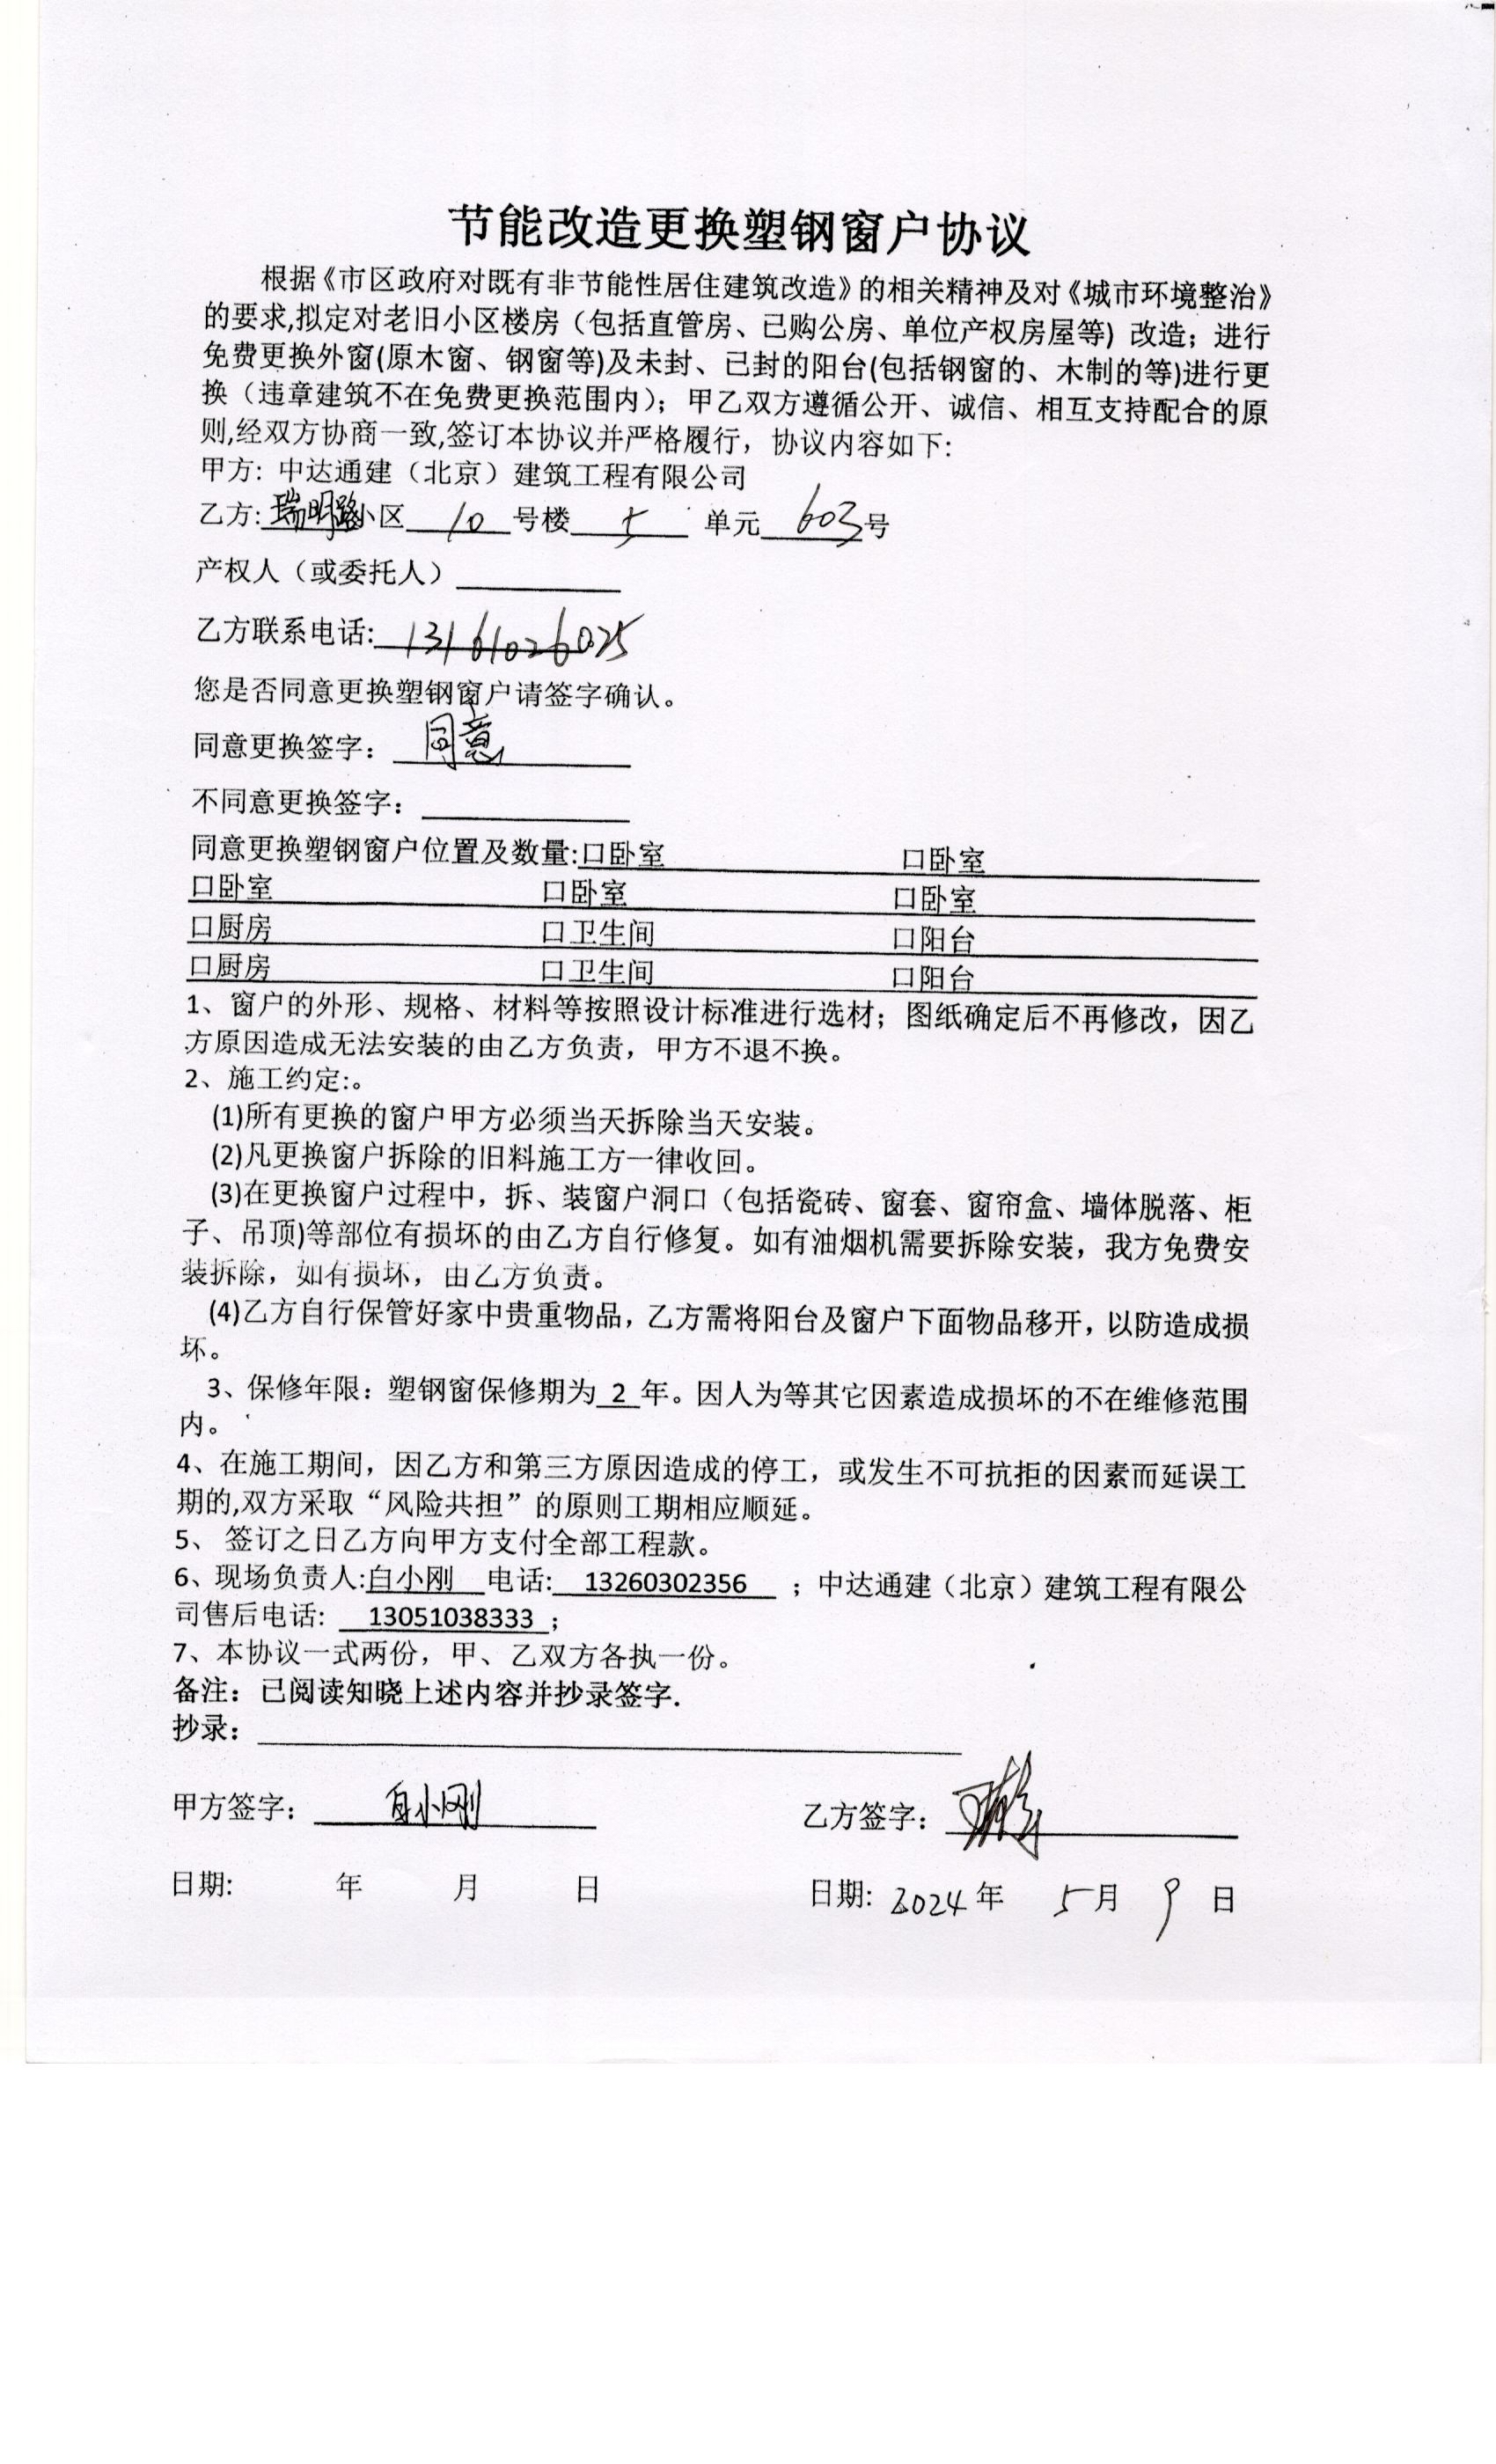 节能改造更换塑钢窗户协议
根据《市区政府对既有非节能性居住建筑改造》的相关精神及对《城市环境整治》
的要求,拟定对老旧小区楼房（包括直管房、已购公房、单位产权房屋等) 改造；进行
免费更换外窗(原木窗、钢窗等)及未封、已封的阳台(包括钢窗的、木制的等)进行更
换（违章建筑不在免费更换范围内)；甲乙双方遵循公开、诚信、相互支持配合的原
则,经双方协商一致,签订本协议并严格履行，协议内容如下:
甲方: 中达通建（北京）建筑工程有限公司
乙方: 瑞明路小区 10 号楼 5 单元 603 号
产权人（或委托人）
乙方联系电话: 13161026025
您是否同意更换塑钢窗户请签字确认。
同意更换签字： 同意
不同意更换签字：
同意更换塑钢窗户位置及数量:口卧室 口卧室
口卧室 口卧室 口卧室
口厨房 口卫生间 口阳台
口厨房 口卫生间 口阳台
1、窗户的外形、规格、材料等按照设计标准进行选材；图纸确定后不再修改，因乙
方原因造成无法安装的由乙方负责，甲方不退不换。
2、施工约定:。
(1)所有更换的窗户甲方必须当天拆除当天安装。
(2)凡更换窗户拆除的旧料施工方一律收回。
(3)在更换窗户过程中，拆、装窗户洞口（包括瓷砖、窗套、窗帘盒、墙体脱落、柜
子、吊顶)等部位有损坏的由乙方自行修复。如有油烟机需要拆除安装，我方免费安
装拆除，如有损坏，由乙方负责。
(4)乙方自行保管好家中贵重物品，乙方需将阳台及窗户下面物品移开，以防造成损
坏。
3、保修年限：塑钢窗保修期为 2 年。因人为等其它因素造成损坏的不在维修范围
内。
4、在施工期间，因乙方和第三方原因造成的停工，或发生不可抗拒的因素而延误工
期的,双方采取“风险共担”的原则工期相应顺延。
5、 签订之日乙方向甲方支付全部工程款。
6、现场负责人:白小刚 电话: 13260302356 ；中达通建（北京）建筑工程有限公
司售后电话: 13051038333 ；
7、本协议一式两份，甲、乙双方各执一份。
备注：已阅读知晓上述内容并抄录签字.
抄录：
甲方签字： 白小刚 乙方签字：
日期: 年 月 日 日期: 2024 年 5 月 9 日